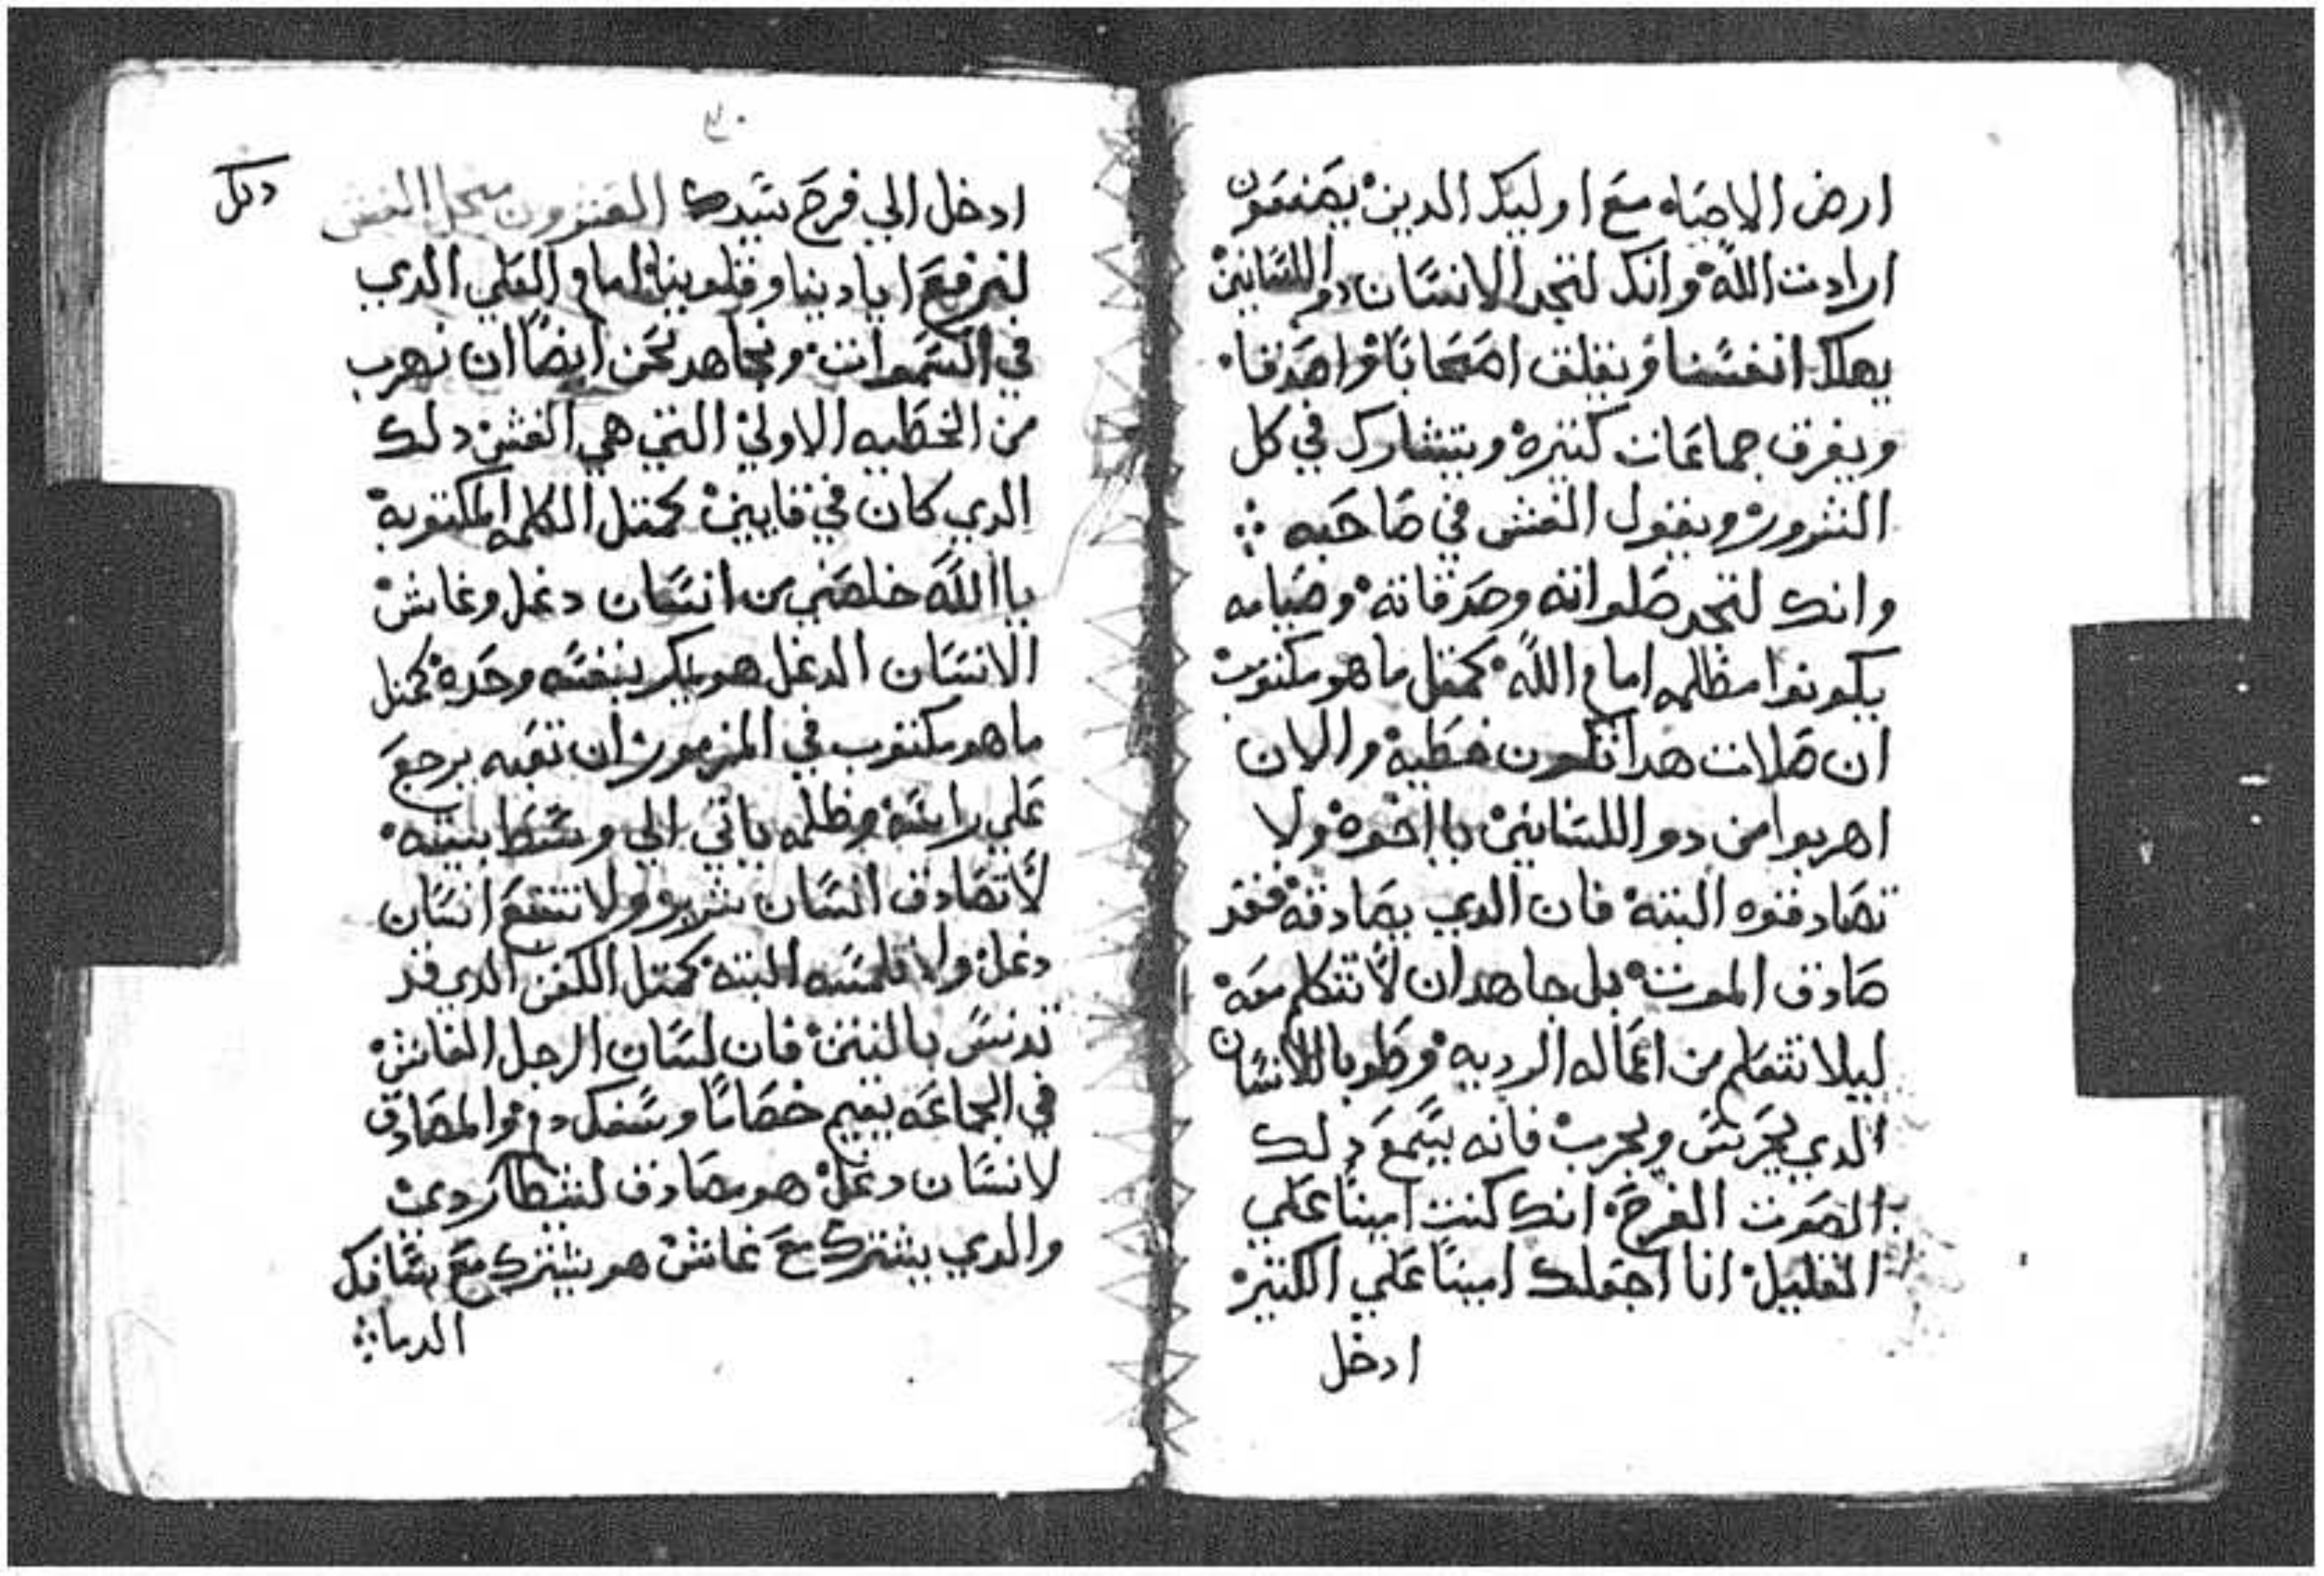 ارض الاحياه مع اوليك الدين يصنعون
ارادت الله وانك لتجد الانسان دو اللسانين
يهلك انفسنا ويقلق اصحابا واهدنا
ويفرق جماعات كتيرة ويتشارك في كل
الشرور ويقول الغش في صاحبه
وانك لتجد صلواته وصدقاته وصيامه
يكونوا مظلمه امام الله كمتل ما هو مكتوب
ان صلات هدا تكون خطية والان
اهربوا من دو اللسانين يا اخوة ولا
تصادقوه البتة فان الدي يصادقه فقد
صادف الموت بل جاهد ان لا تتكلم معه
ليلا تتعلم من اعماله الرديه وطوبا للانسان
الدي يحرس ويجرب فانه يسمع دلك
الصوت الفرح انك كنت امينا علي
القليل انا اجعلك امينا علي الكتير
ادخل
٣٠
ادخل الي فرح سيدك العشرون من اجل الغش
لنرفع ايادينا وقلوبنا امام العلي الدي
في السموات ونجاهد نحن ايضا ان نهرب
من الخطيه الاولي التي هي الغش دلك
الدي كان في قايين كمتل الكلمه المكتوبة
يا الله خلصني من انسان دغل وغاش
الانسان الدغل هو يمكر بنفسه وحده كمتل
ما هو مكتوب في المزمور ان تعبه يرجع
علي راسه وظلمه ياتي الي وسط بيته
لا تصادف انسان شرير ولا تتبع انسان
دغل ولا تلمسه البتة كمتل الكفن الدي قد
تدنس بالنتن فان لسان الرجل الغاش
في الجماعه يقيم خصاما وسفك دم والمصادق
لانسان دغل هو مصادف لشيطان ردي
والدي يشترك مع غاش هو يشترك مع سافك
الدما